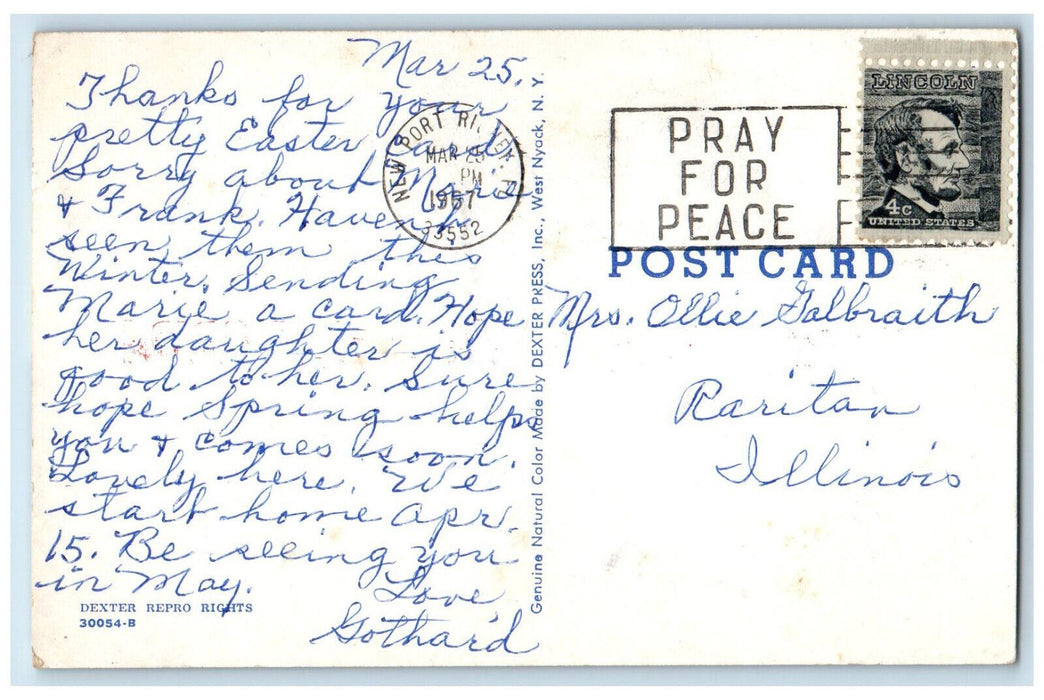 Mar 25.
Thanks for your
pretty Easter card.
Sorry about Marie
& Frank. Haven't
seen them this
Winter. Sending
Marie a card. Hope
her daughter is
good to her. Sure
hope Spring helps
you & comes soon.
Lovely here. We
start home Apr.
15. Be seeing you
in May.
Love,
Gothard
DEXTER REPRO RIGHTS
30054-B
NEW PORT RICHEY
MAR 25
PM
1967
33552
Genuine Natural Color Made by DEXTER PRESS, Inc., West Nyack, N. Y.
PRAY
FOR
PEACE
LINCOLN
4c
UNITED STATES
POST CARD
Mrs. Ollie Galbraith
Raritan
Illinois